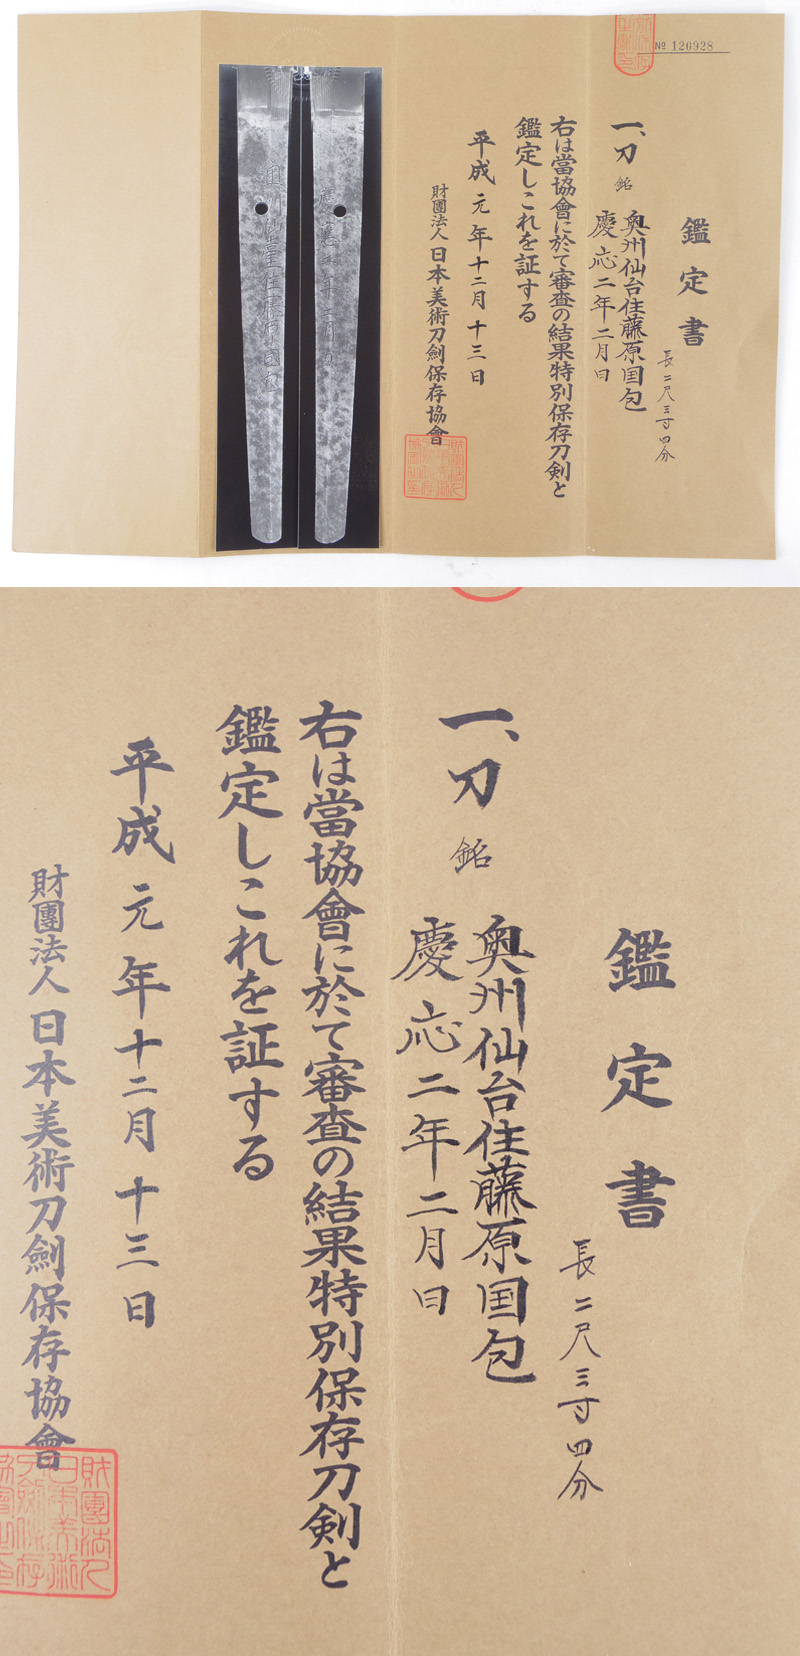 № 120928
鑑定書
長二尺三寸四分
一、刀 銘
奥州仙台住藤原国包
慶応二年二月日
右は當協會に於て審査の結果特別保存刀剣と
鑑定しこれを証する
平成元年十二月十三日
財團法人日本美術刀劍保存協會
鑑定書
長二尺三寸四分
一、刀 銘
奥州仙台住藤原国包
慶応二年二月日
右は當協會に於て審査の結果特別保存刀剣と
鑑定しこれを証する
平成元年十二月十三日
財團法人日本美術刀劍保存協會